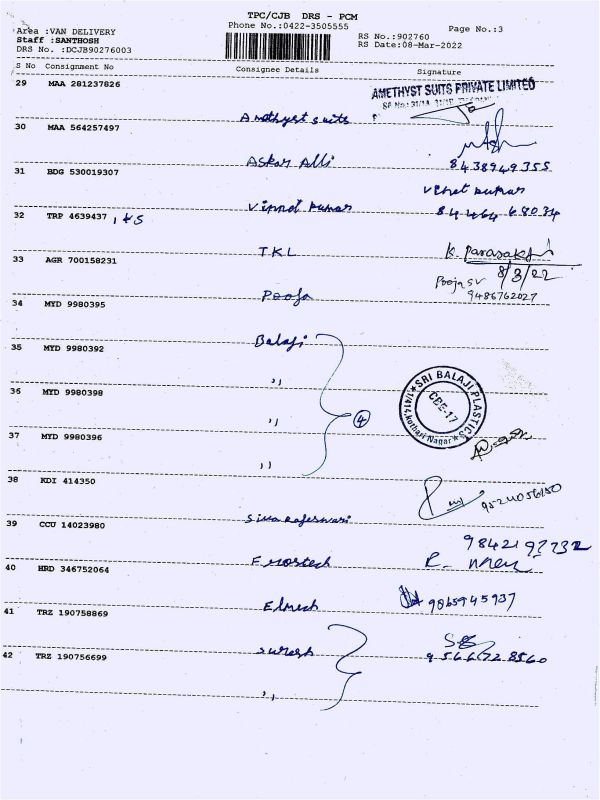 TPC/CJB DRS - PCM
Area :VAN DELIVERY
Phone No.:0422-3505555
Page No.:3
Staff :SANTHOSH
RS No.:902760
DRS No. :DCJB90276003
RS Date:08-Mar-2022
S No Consignment No Consignee Details Signature
29 MAA 281237826
AMETHYST SUITS PRIVATE LIMITED
Amethyst suits
30 MAA 564257497
Askar Alli
8438949355
31 BDG 530019307
Vinot kumar
Vinot kumar
32 TRP 4639437
TKL
8/3/22
33 AGR 700158231
Pooja
Pooja sv
9486762027
34 MYD 9980395
Balaji
35 MYD 9980392
,,
36 MYD 9980398
,,
4
SRI BALAJI PLASTICS
1/414, Kothari Nagar
CBE-17
37 MYD 9980396
,,
38 KDI 414350
Siva Rajeswari
39 CCU 14023980
Frostech
40 HRD 346752064
9065945937
41 TRZ 190758869
Suresh
9566728560
42 TRZ 190756699
,,